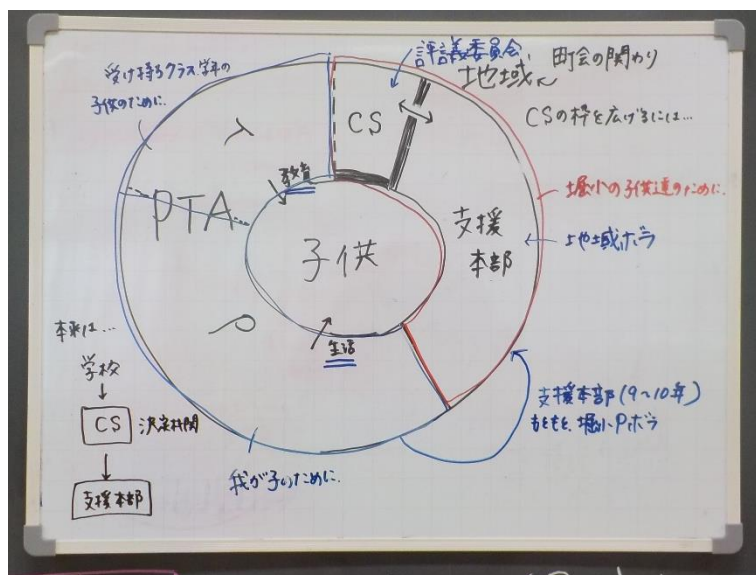 受け持ちクラス、学年の
子供のために.
評議委員会、
地域
町会の関わり
CSの枠を広げるには…
CS
教育
PTA
子供
支援
本部
堀小の子供達のために.
地域ボラ
生活
本来は…
学校
CS 決定機関
支援本部
我が子のために.
支援本部(9~10年)
もともと、堀小Pボラ